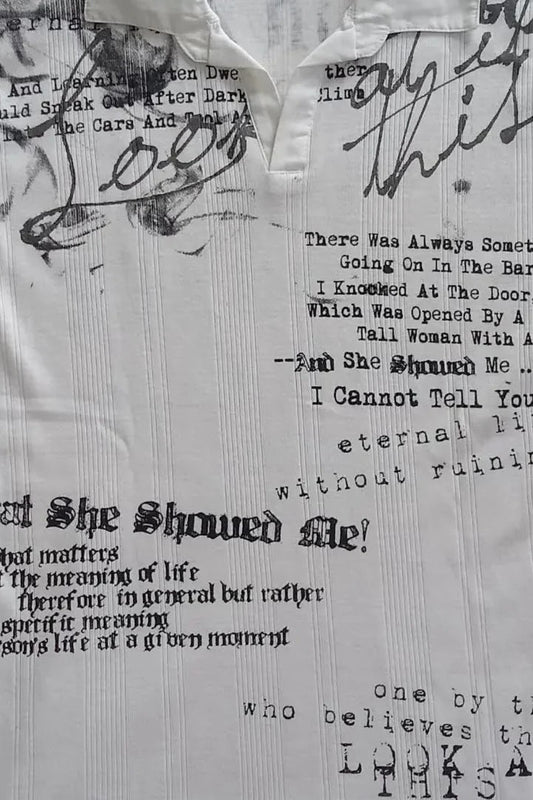 And Learning ten Dwe
uld Sneak Out After Dark
The Cars And
Look
ther
Slim
at
this
There Was Always Somet
Going On In The Bar
I Knocked At The Door,
Which Was Opened By A
Tall Woman With A
--And She Showed Me ..
I Cannot Tell You
eternal li
without ruinin
at She Showed Me!
hat matters
t the meaning of life
therefore in general but rather
specific meaning
rson's life at a given moment
one by t
who believes th
LOOK A
THIS